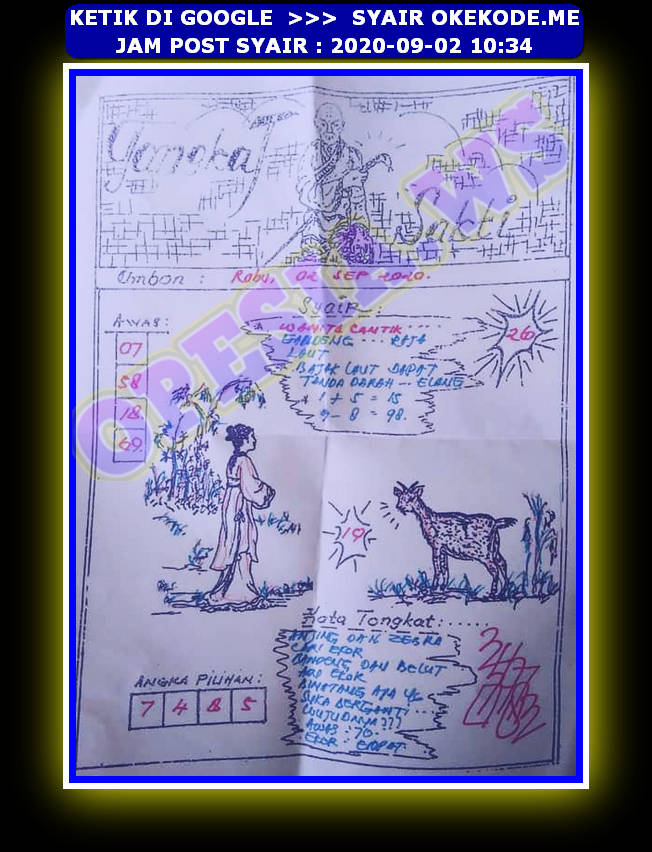 KETIK DI GOOGLE >>> SYAIR OKEKODE.ME
JAM POST SYAIR : 2020-09-02 10:34
Sakti
Umbon : Rabu, 02 SEP 2020.
Syair :
WANITA CANTIK ....
GANDENG .... RAJA
LAUT
BAJAK LAUT DAPAT
TANDA DARAH --- ELANG
1 + 5 = 15
9 - 8 = 98.
26
AWAS :
07
58
18
69
19
Kata Tongkat : ......
ANJING DAN ZEBRA
CARI EKOR
BANDENG DAN BELUT
ADU EKOR
BINATANG APA YG
SUKA BERGANTI ...
WUJUDNYA ???
AWAS : 70.
EKOR : EMPAT
ANGKA PILIHAN :
7 4 8 5